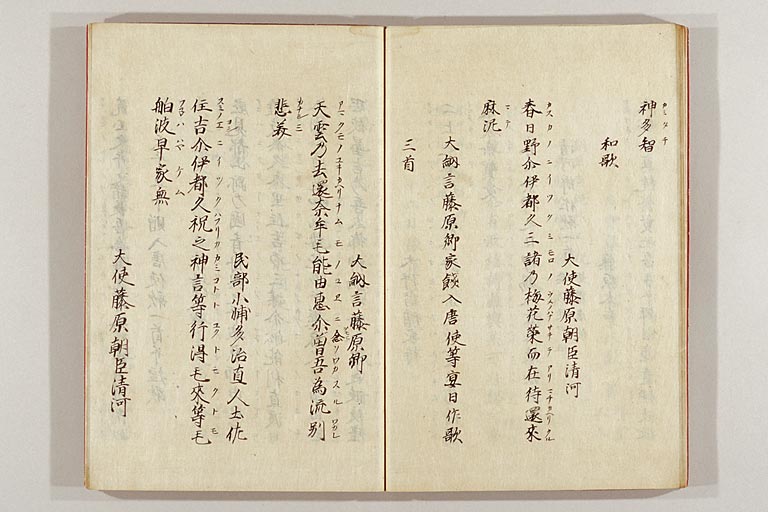 神多智
和歌
大使藤原朝臣清河
春日野尒伊都久三諸乃梅花榮而在待還来
麻泥
大納言藤原卿家餞入唐使等宴日作歌
三首
大納言藤原卿
天雲乃去還奈牟毛能由恵尒念曽吾為流別
悲美
民部少輔多治直人土作
住吉尒伊都久祝之神言等行得毛來等毛
舶波早家無
大使藤原朝臣清河